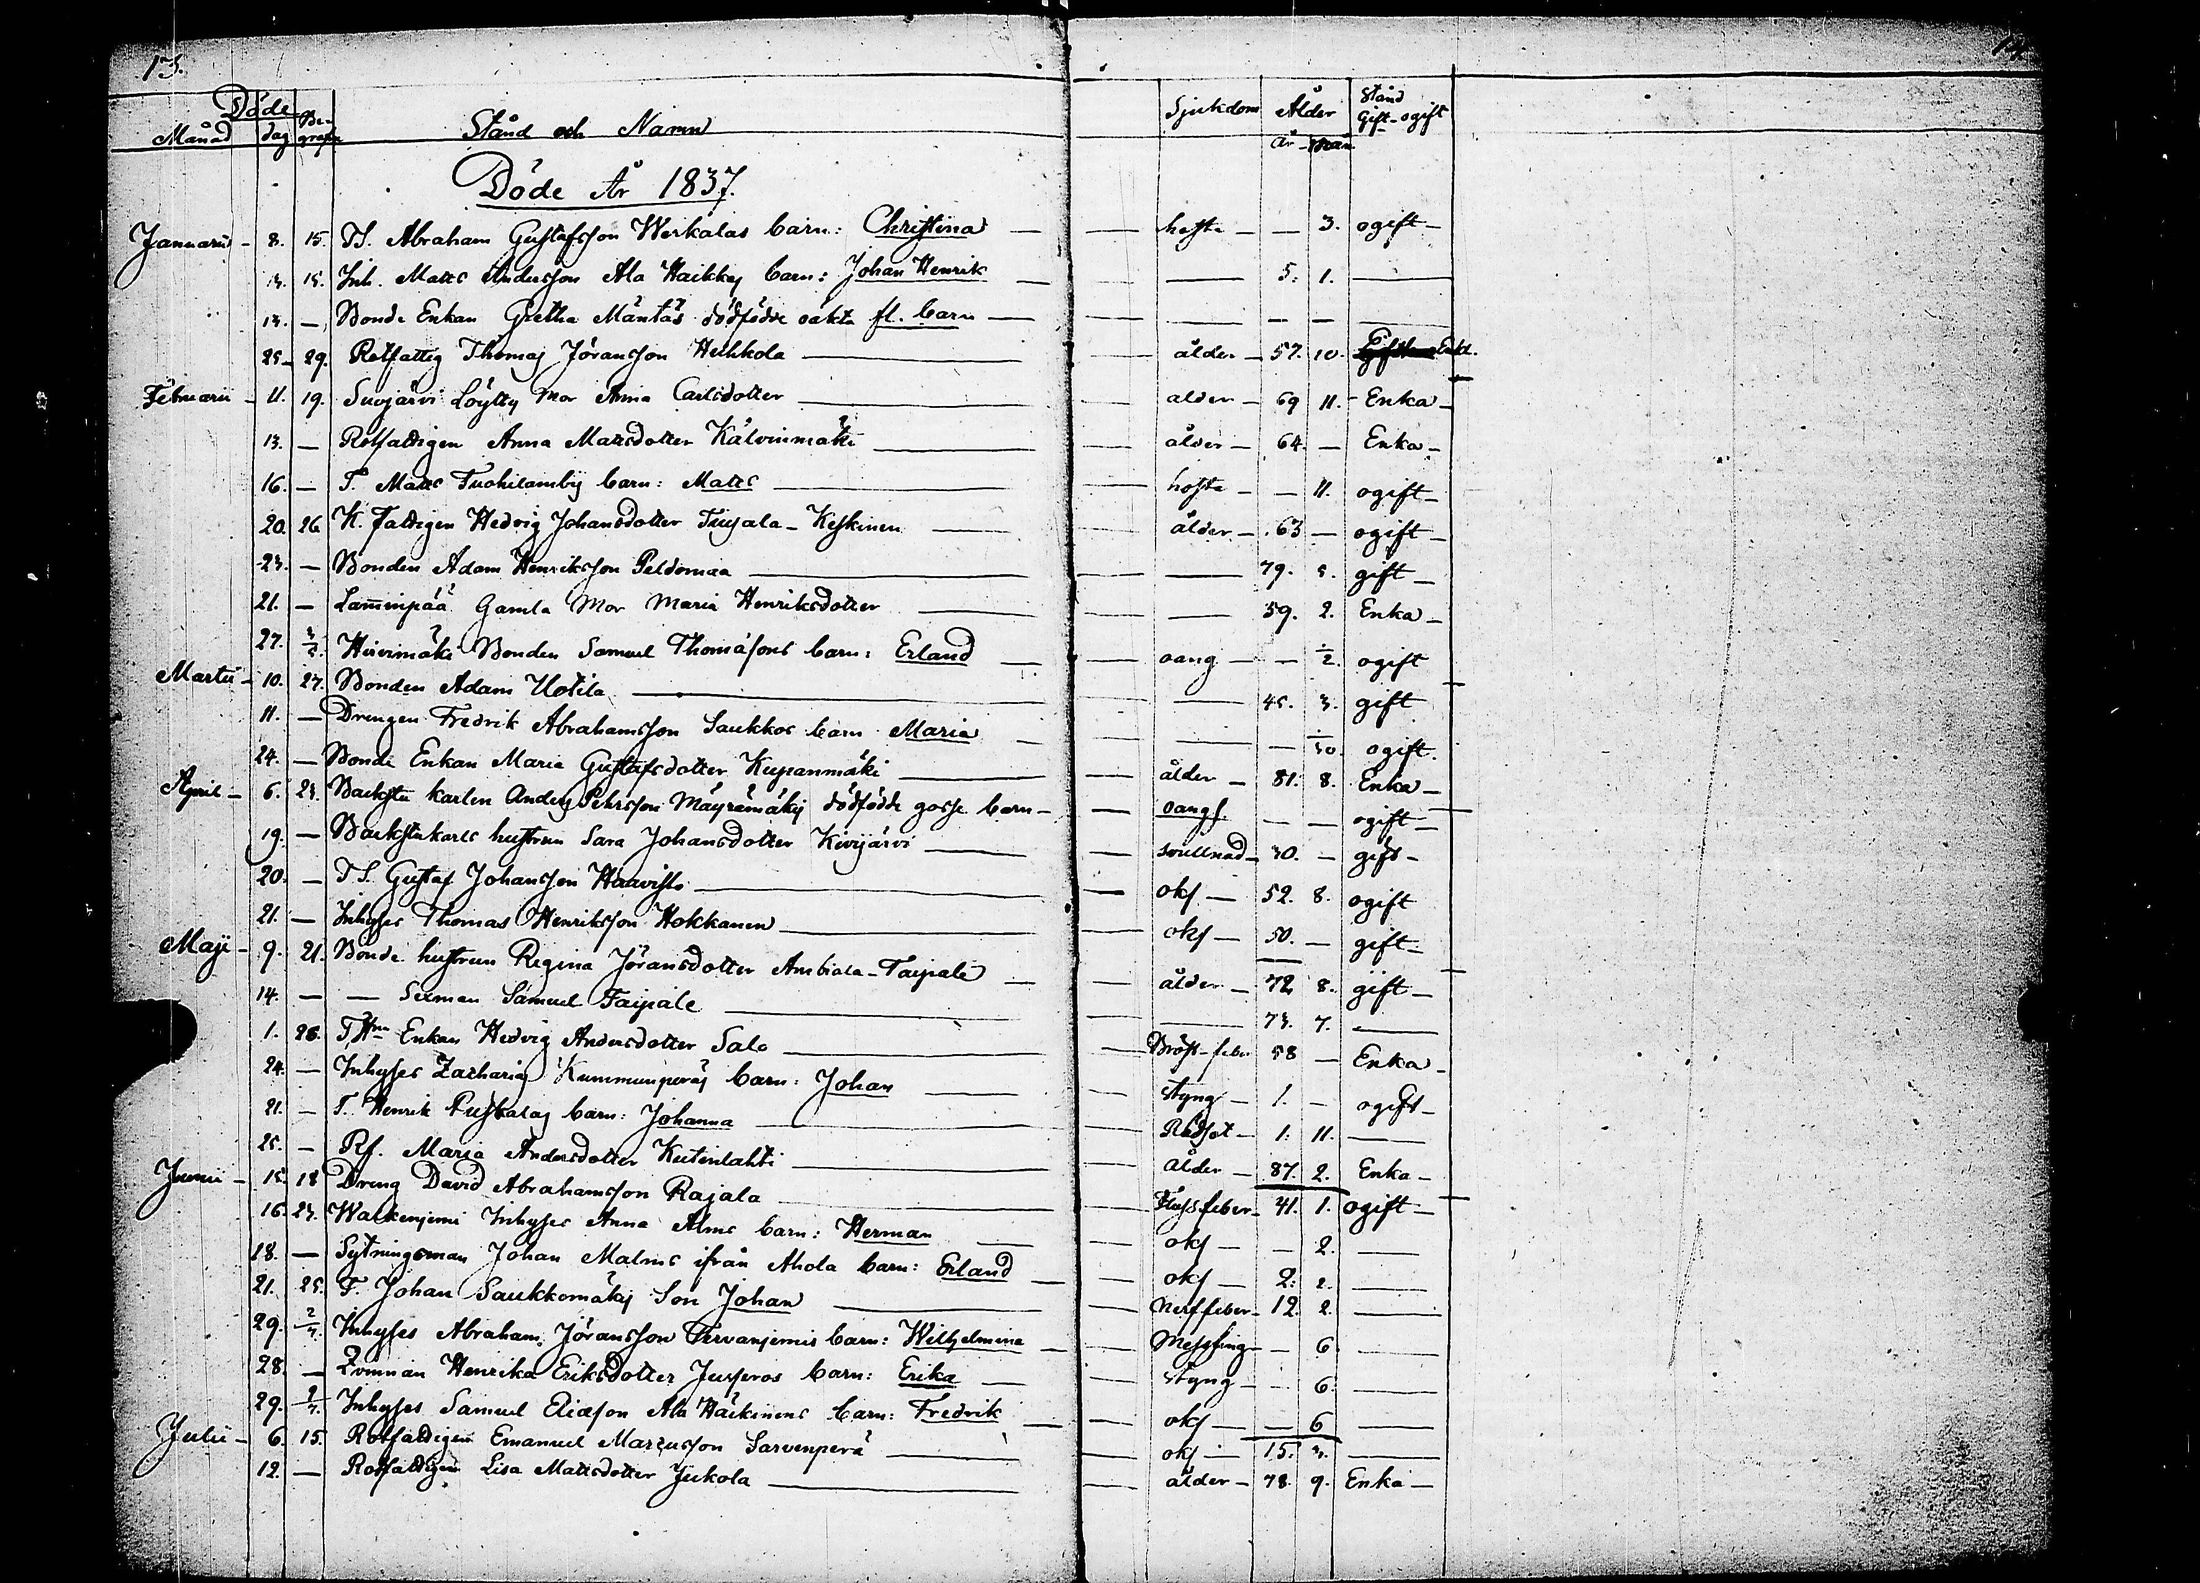 13. 14.
Döde
Månad dag Be-grafn Stånd och Namn Sjukdom Ålder Stånd Gift-ogift
År - Mån
Döde År 1837.
Januarii - 8. 15. T.S. Abraham Gustafsson Werkalas barn: Christina — hosta — — 3. ogift —
13. 15. Inh. Matts Andersson Ala Haikkas barn: Johan Henrik — — 5. 1. —
13. — Bonde Enkan Gretha Mäntäs dödfödde oäkta fl. barn — — — — —
25 - 29. Rotfattig Thomas Jöransson Huhkola — ålder — 57. 10. Enkl.
Februarii - 11. 19. Suojärvi Löytty Mor Anna Carlsdotter — ålder — 69 11. Enka —
13. — Rotfattigen Anna Mattsdotter Kälvinmäki — ålder — 64. — Enka —
16. — T. Matts Tuohilambij barn: Matts — hosta — — 11. ogift —
20. 26 K. fattigen Hedvig Johansdotter Tiijala - Keskinen — ålder — 63 — ogift —
23. — Bonden Adam Henriksson Peldomaa — — 79. 5. gift —
21. — Lamminpää Gamla Mor Maria Henriksdotter — — 59. 2. Enka —
27. 3/5. Hirvimäki Bonden Samuel Thomasons barn: Erland — oang — — ÷/2. ogift
Martii - 10. 27. Bonden Adam Uotila — — 45. 3. gift
11. — Drengen Fredrik Abrahamsson Saukkos barn Maria — — — ÷/30. ogift.
24. — Bonde Enkan Maria Gustafsdotter Kupanmäki — ålder — 81. 8. Enka —
April - 6. 23. Backstu karlen Anders Pehrsson Mäyrämäkij dödfödde gosse barn — oangf. — — ogift —
19. — Backstukarls hustrun Sara Johansdotter Kivijärvi — svullnad — 30. — gift —
20. — T.S. Gustaf Johansson Haavisto — okf — 52. 8. ogift
21. — Inhyses Thomas Henriksson Hokkanen — okf — 50. — gift —
Maji - 9. 21. Bonde hustrun Regina Jöransdotter Ambiala-Taipale — ålder — 72. 8. gift —
14. — — Sexman Samuel Taipale — — 73. 7. —
1. 28. T.Hn Enkan Hedvig Andersdotter Salo — Bröst-feber 58 — Enka —
24. — Inhyses Zacharias Kummunperäs barn: Johan — styng — 1. — ogift —
21. — T. Henrik Puskalas barn: Johanna — Rödsot — 1. 11. —
25. — Rf. Maria Andersdotter Kutinlahti — ålder — 87. 2. Enka —
Junii - 15. 18 Dreng David Abrahamsson Rajala — Flussfeber — 41. 1. ogift —
16. 23. Walkenjemi Inhyses Anna Alms barn: Herman — okf — — 2. —
18. — Sytningsman Johan Malms ifrån Ahola barn: Erland — okf — 2. 2. —
21. 25. T. Johan Saukkomäkij Son Johan — Nerffeber — 12. 2. —
29. 2/7. Inhyses Abraham Jöransson Tervanjemis barn: Wilhelmina — Messling — — 6 —
28. — Qvinnan Henrika Eriksdotter Jusseros barn: Erika — styng — — 6. —
29. 2/7. Inhyses Samuel Eliæson Ala Häckinens barn: Fredrik — okf — — 6 —
Julii - 6. 15. Rotfattigen Emanuel Marcusson Sarvenperä — okf — 15. 3. —
12. — Rotfattigen Lisa Mattsdotter Jukola — ålder — 78. 9. Enka —